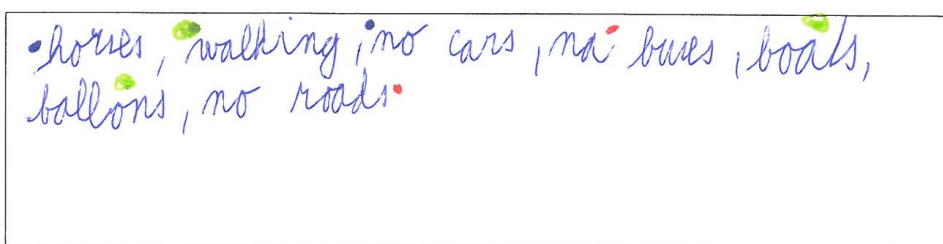 horses, walking, no cars, no buses, boats,
ballons, no roads